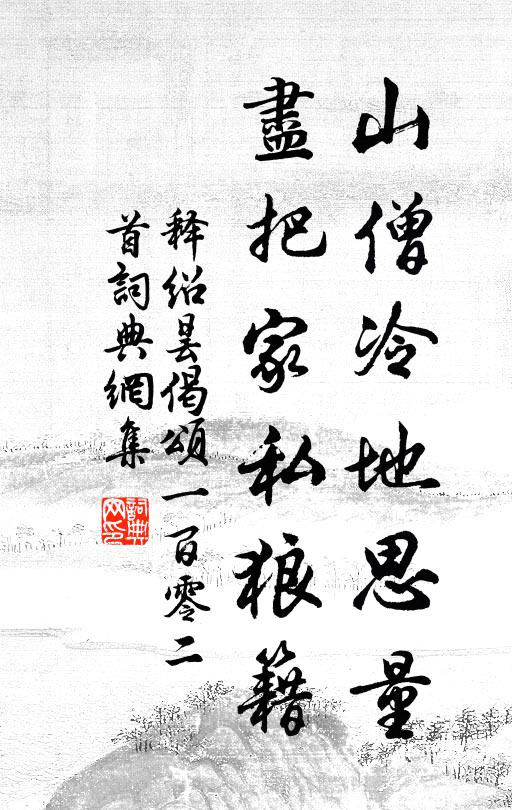 山僧冷地思量
盡把家私狼籍
释绍昙偈頌一百零二
首詞典網集
詞典
网